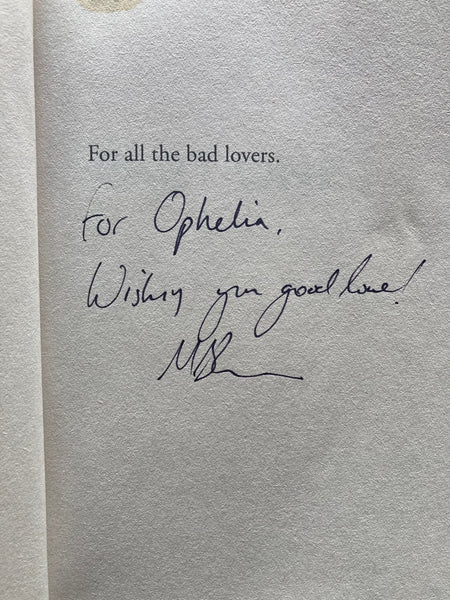 For all the bad lovers.
For Ophelia,
Wishing you good love!